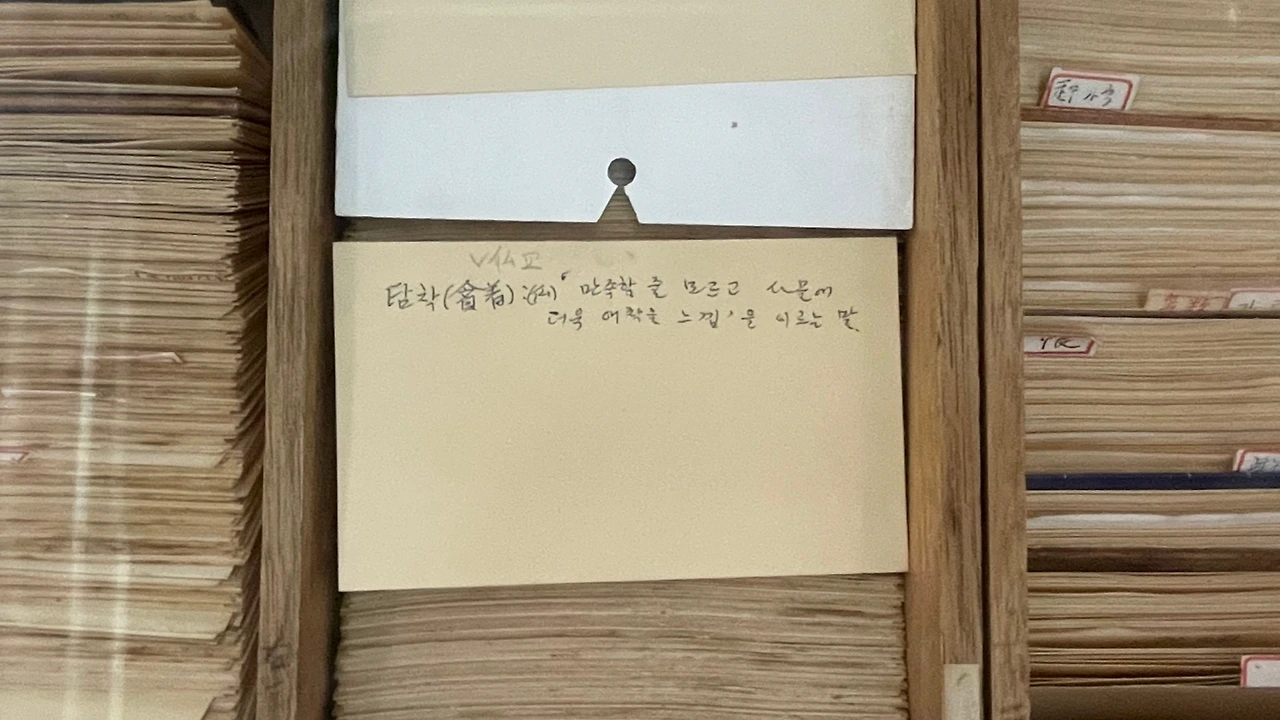 V仏교
탐착(貪着):(仏)‘만족할 줄 모르고 사물에
더욱 애착을 느낌’을 이르는 말.